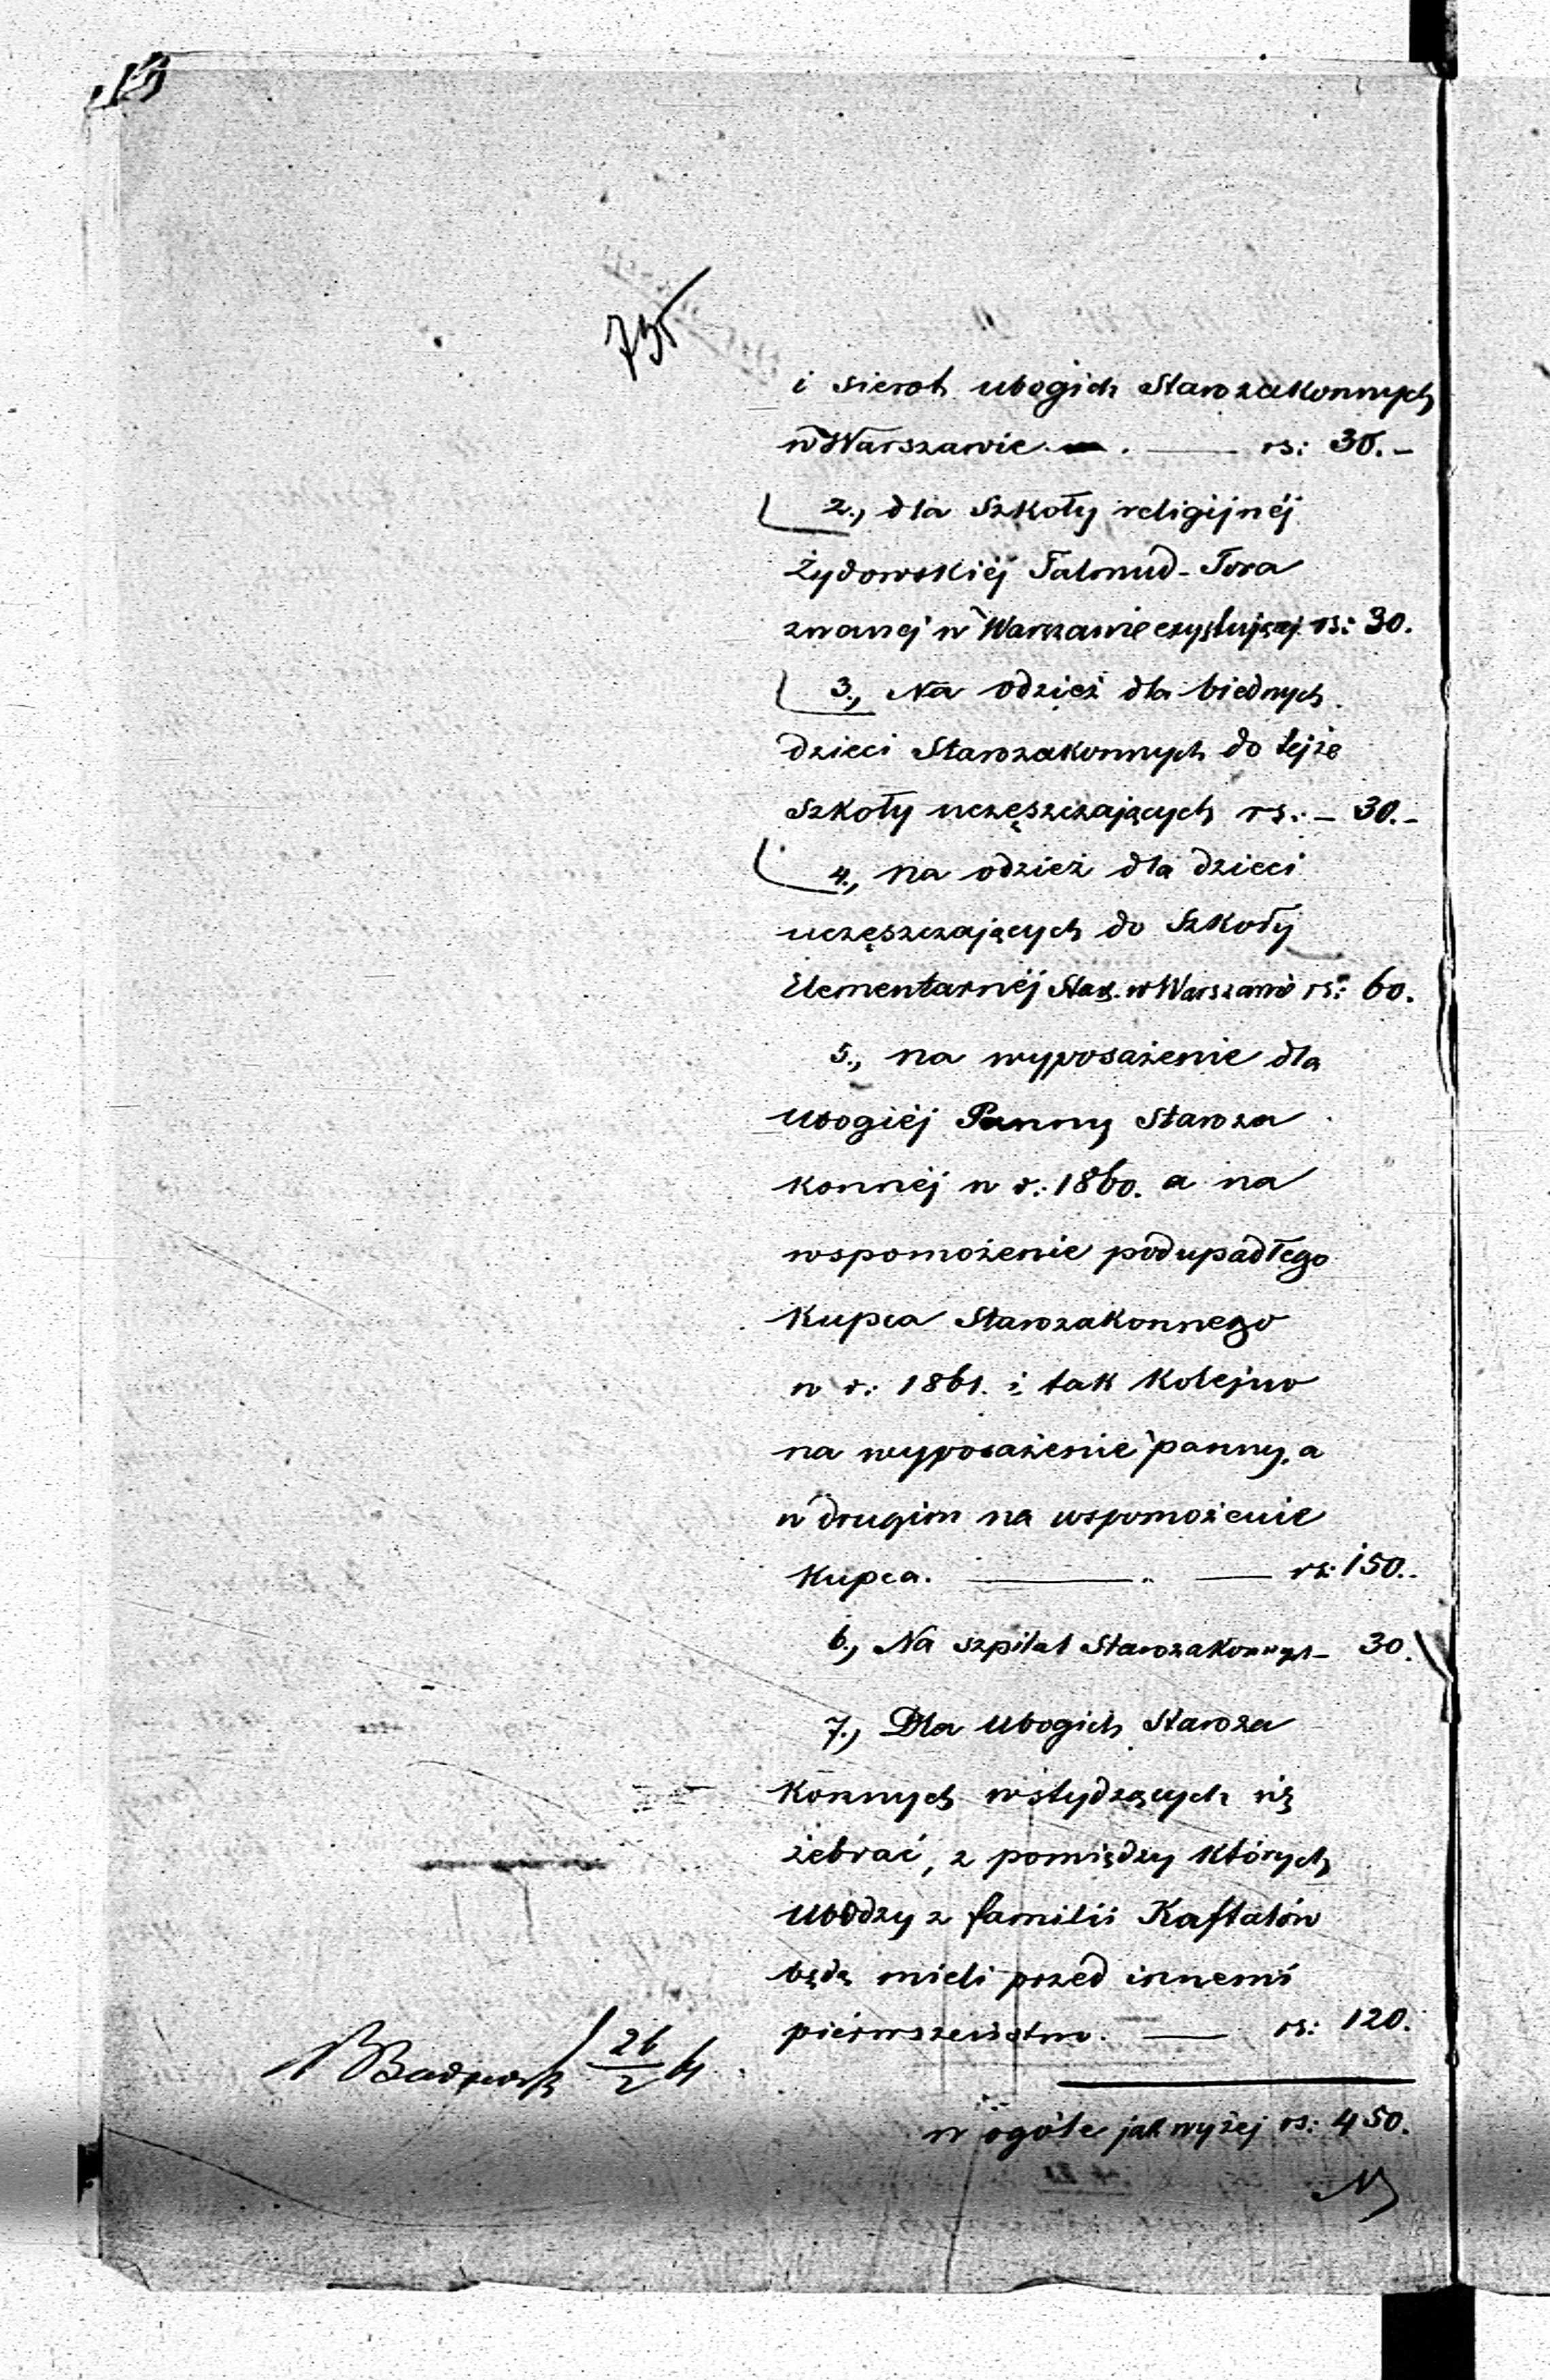 i sierot ubogich Starozakonnych
w Warszawie . — rs: 30.-
2., dla Szkoły religijnéj
Żydowskiéj Talmud-Tora
zwanej w Warszawie exystującej rs: 30.
3., Na odzież dla biednych
dzieci Starozakonnych do tejże
Szkoły uczęszczających rs: - 30.-
4., na odzież dla dzieci
uczęszczających do Szkoły
Elementarnéj Star. w Warszawie rs: 60.
5., na wyposażenie dla
Ubogiéj Panny Staroza
konnéj w r: 1860. a na
wspomożenie podupadłego
Kupca Starozakonnego
w r: 1861. i tak Kolejno
na wyposażenie panny, a
w drugim na wspomożenie
Kupca. — " — rs: 150.
6., Na szpital Starozakonnych - 30.
7., Dla Ubogich Staroza
konnych wstydzących się
żebrać, z pomiędzy których
Ubodzy z familii Kaftalów
będą mieli przed innemi
pierwszeństwo. — rs: 120.
26/2
w ogóle jak wyżej rs: 450.